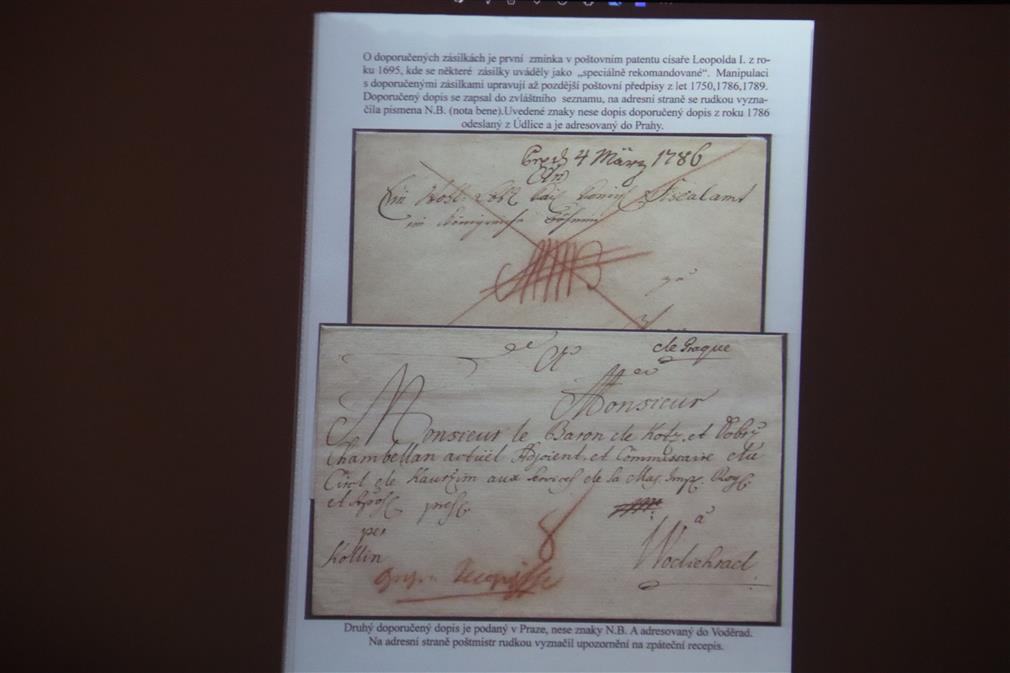 O doporučených zásilkách je první zmínka v poštovním patentu císaře Leopolda I. z ro-
ku 1695, kde se některé zásilky uváděly jako „speciálně rekomandované“. Manipulaci
s doporučenými zásilkami upravují až pozdější poštovní předpisy z let 1750,1786,1789.
Doporučený dopis se zapsal do zvláštního seznamu, na adresní straně se rudkou vyzna-
čila písmena N.B. (nota bene).Uvedené znaky nese dopis doporučený dopis z roku 1786
odeslaný z Údlice a je adresovaný do Prahy.
4 März 1786
An
Fiscalamt
im Königreich
de Prague
A
Monsieur
Monsieur le Baron de Kotz, et Dobrz
Chambellan actuel Adjoient, et Commissaire du
Circl de Kauržim aux services de la Maj. Imp. Roy.
et Apos. pres.
per
Kollin
8
a
Wodiehrad
Druhý doporučený dopis je podaný v Praze, nese znaky N.B. A adresovaný do Voděrad.
Na adresní straně poštmistr rudkou vyznačil upozornění na zpáteční recepis.